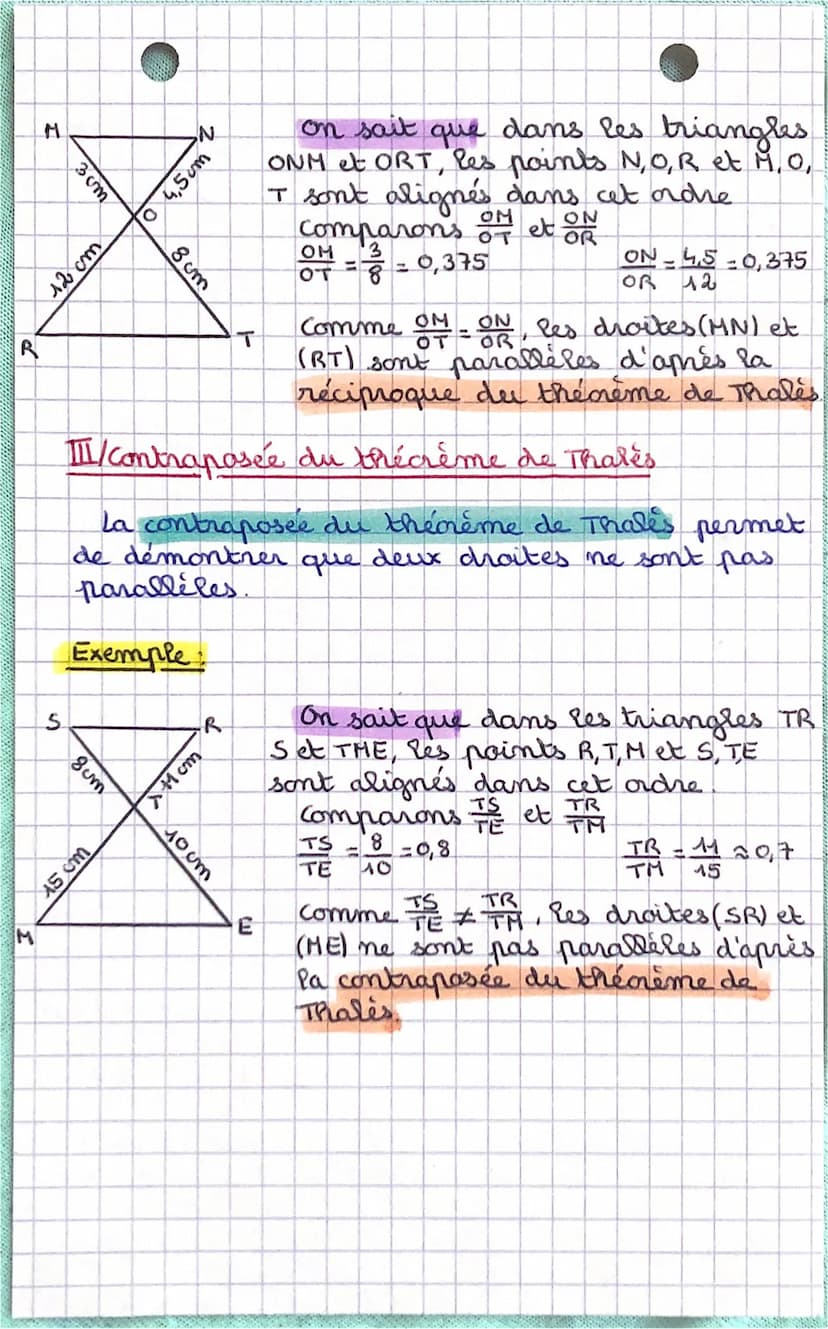 M
N
3cm
4,5cm
O
12 cm
8cm
R
T
On sait que dans les triangles
ONM et ORT, les points N,O,R et M,O,
T sont alignés dans cet ordre
Comparons OM/OT et ON/OR
OM/OT = 3/8 = 0,375 ON/OR = 4,5/12 = 0,375
Comme OM/OT = ON/OR, les droites (MN) et
(RT) sont parallèles d'après la
réciproque du théorème de Thalès
III/Contraposée du théorème de Thalès
La contraposée du théorème de Thalès permet
de démontrer que deux droites ne sont pas
parallèles.
Exemple:
S
R
8cm
11cm
T
15 cm
10cm
M
E
On sait que dans les triangles TR
S et TME, les points R,T,M et S,T,E
sont alignés dans cet ordre.
Comparons TS/TE et TR/TM
TS/TE = 8/10 = 0,8 TR/TM = 11/15 ≈ 0,7
Comme TS/TE ≠ TR/TM, les droites (SR) et
(ME) ne sont pas parallèles d'après
la contraposée du théorème de
Thalès.